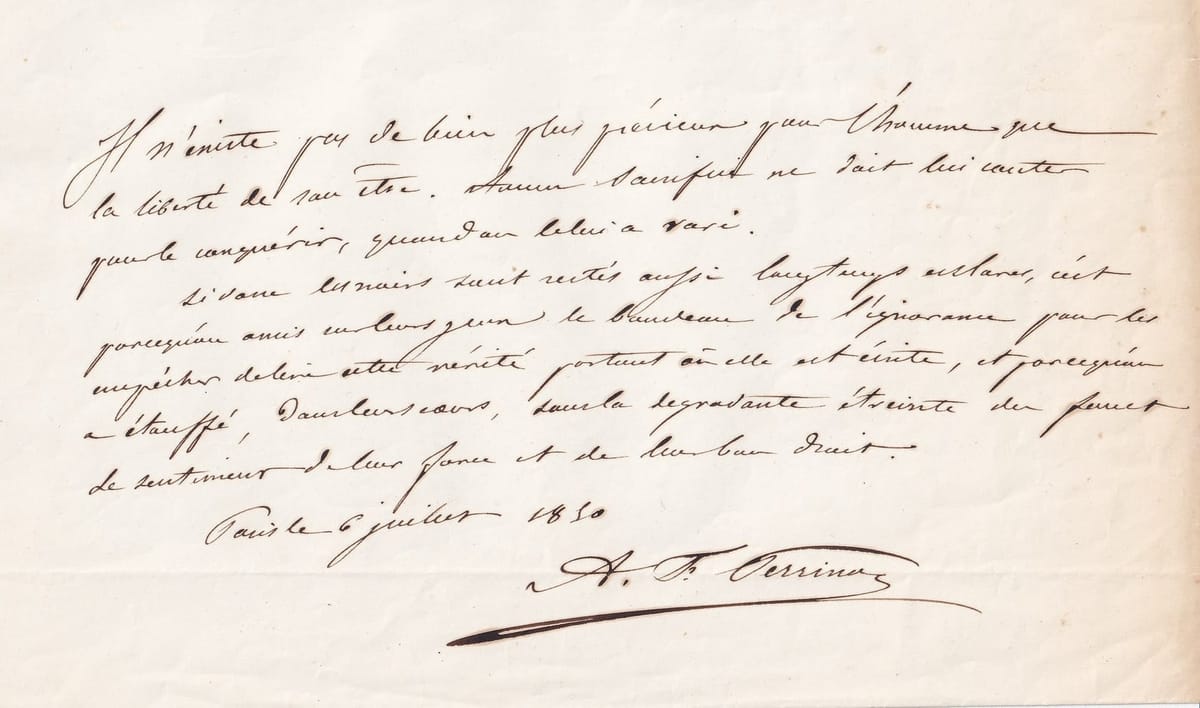 Il n'existe pas de bien plus précieux pour l'homme que
la liberté de son être. Aucun sacrifice ne doit lui couter
pour le conquérir, quand on le lui a ravi.
Si donc les noirs sont restés aussi longtemps esclaves, c'est
parcequ'on a mis sur leurs yeux le bandeau de l'ignorance pour les
empêcher de lire cette vérité partout où elle est écrite, et parcequ'on
a étouffé, dans leurs cœurs, sous la degradante étreinte du fouet
le sentiment de leur force et de leur bon droit.
Paris le 6 juillet 1850
A. F. Perrinon